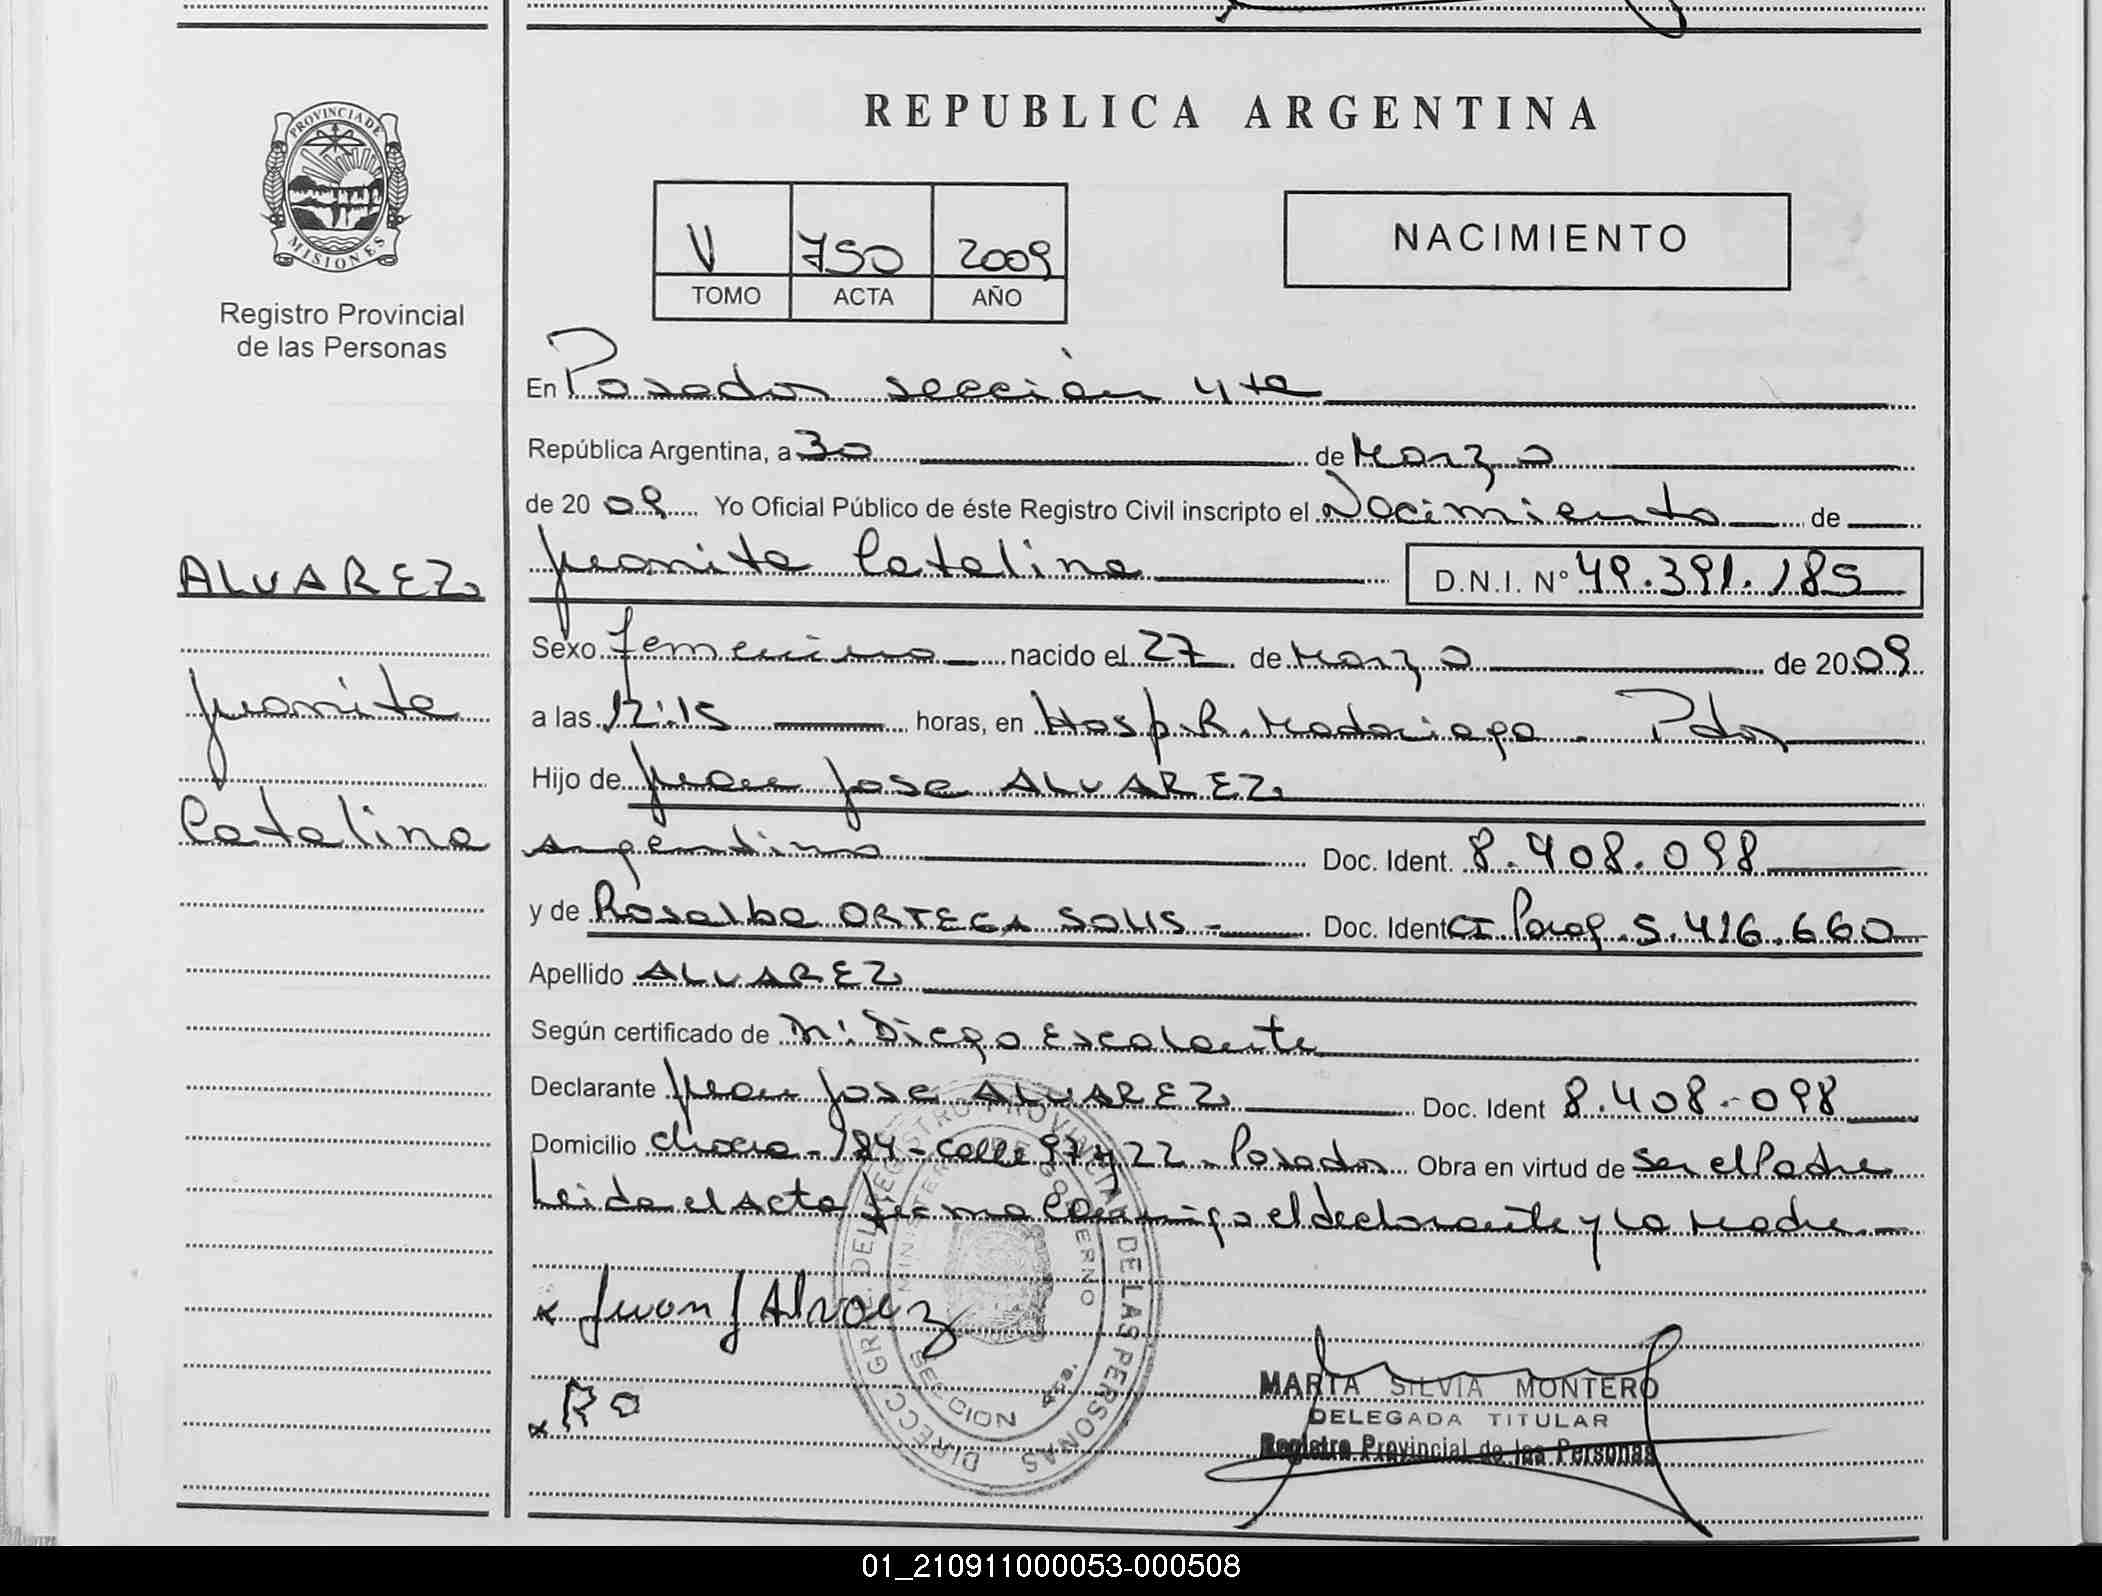 REPUBLICA ARGENTINA
PROVINCIA DE MISIONES
Registro Provincial
de las Personas
V 750 2009
TOMO ACTA AÑO
NACIMIENTO
En Posadas sección 4ta
República Argentina, a 30 de Marzo
de 20 09 Yo Oficial Público de éste Registro Civil inscripto el Nacimiento de
Juanita Catalina D.N.I. Nº 49.391.185
ALVAREZ
Juanita
Catalina
Sexo femenino nacido el 27 de Marzo de 20 09
a las 12:15 horas, en Hosp. R. Madariaga - Pdas
Hijo de Juan Jose ALVAREZ
Argentino Doc. Ident. 8.408.098
y de Rosalba ORTEGA SOLIS - Doc. Ident CI Parag. 5.416.660
Apellido ALVAREZ
Según certificado de M: Diego Escalante
Declarante Juan Jose ALVAREZ Doc. Ident 8.408.098
Domicilio chacra - 184 - calle 97 y 22 - Posadas Obra en virtud de ser el Padre
Leida el Acta firma conmigo el declarante y la Madre -
x Juan J Alvarez
x Ro
DIRECC GRAL DEL REGISTRO PROVINCIAL DE LAS PERSONAS
MINISTERIO DE GOBIERNO
SECCION 4ta.
MARTA SILVIA MONTERO
DELEGADA TITULAR
Registro Provincial de las Personas
01_210911000053-000508